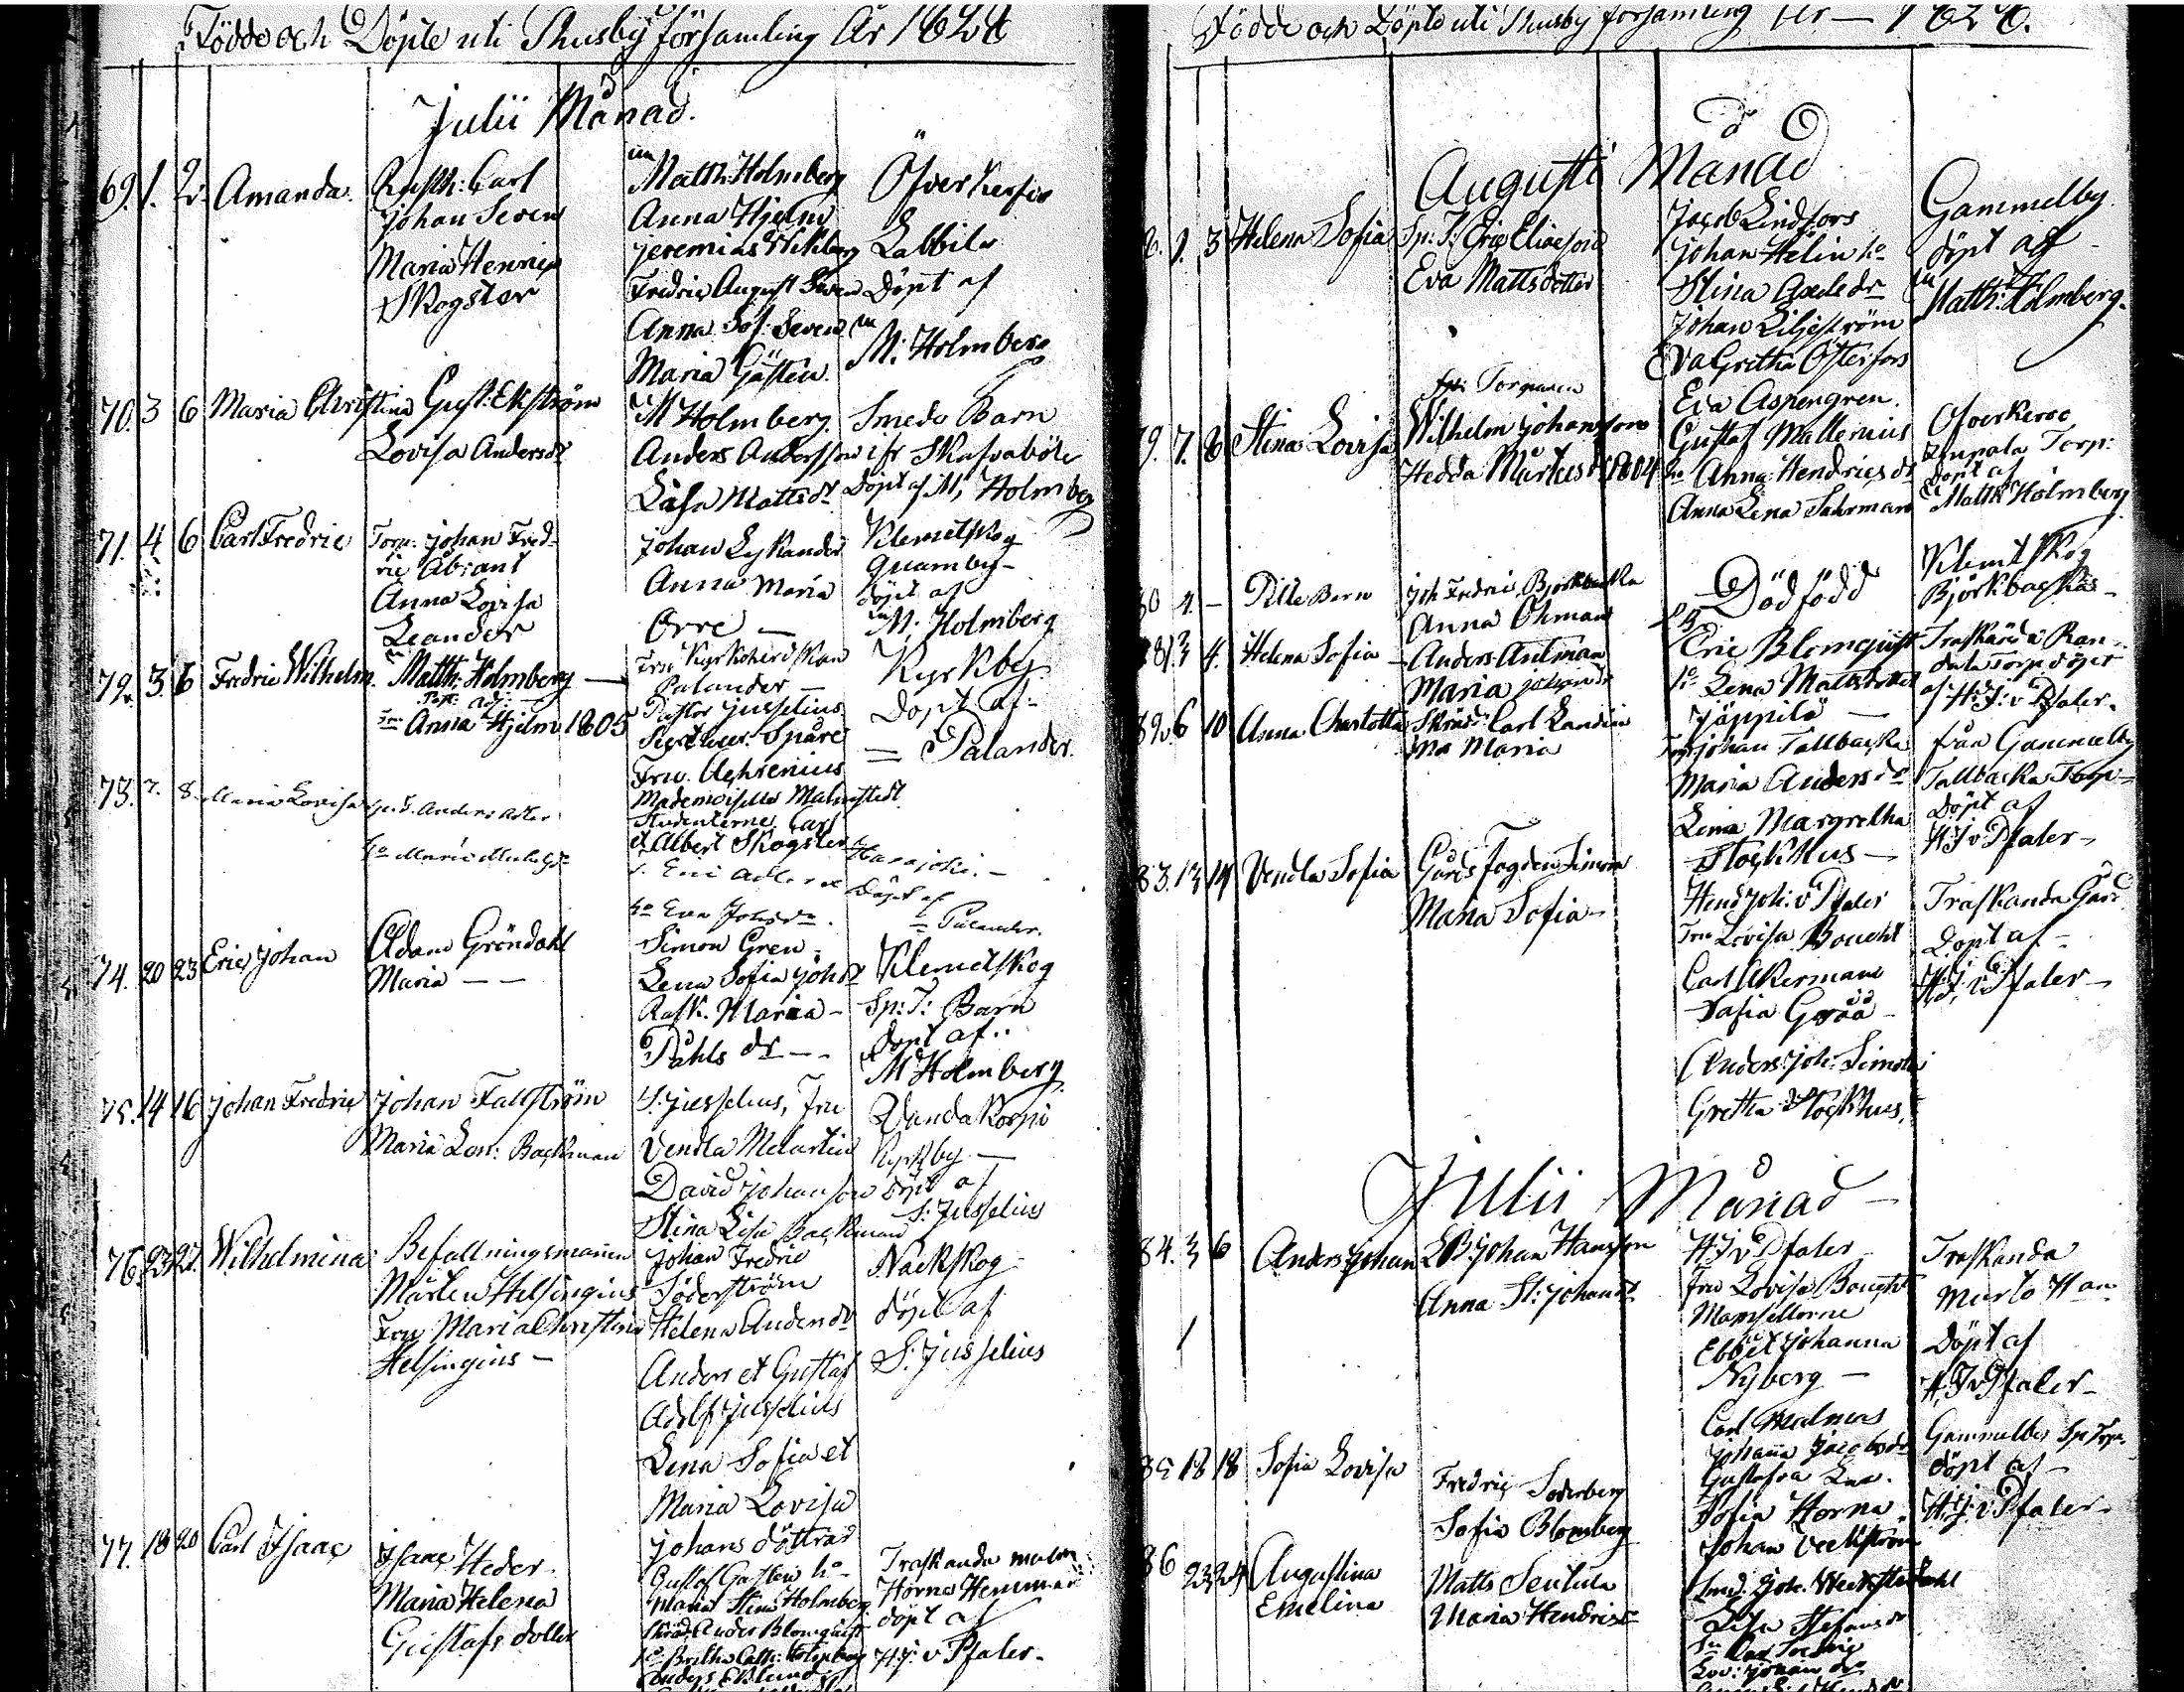 Födde och Döpte uti Thusby församling År 1828
Julii Månad.
69. 1. 2. Amanda.
Rusth: Carl
Johan Seven
Maria Henric
Skogster
Matth: Holmberg
Anna Hjelm
Jeremias Wikberg
Fredric August Seven
Anna Sof: Seven
Maria Gästen.
Labbila
Döpt af
M: Holmberg
70. 3 6 Maria Christina
Gust: Ekström
Lovisa Andersdr
M Holmberg.
Anders Andersson
Lisa Mattsdr
Smeds Barn
ifr Skafvaböle
Döpt af M, Holmberg
71. 4 6 Carl Fredric
Torp: Johan Fred-
ric Abrant
Anna Lovisa
Leander
Johan Lykander
Anna Maria
Orre —
Klemetskog
döpt af
M; Holmberg
72. 3. 6 Fredric Wilhelm.
Matth: Holmberg —
Past: Adj:
Anna Hjelm 1805
Fru Kyrkoherdskan
Palander —
Pastor Jusselius
Spåre
Fru. Wehrenius
Mademoiselle Malmstedt
Studenterne Carl
et Albert Skogster
Kyrkby
Döpt af
= Palander.
73. 7. 8. Maria Lovisa
Sp. T. Anders Adler
T. Eric Adler
ho Eva Johsdr.
Harajoki. —
Döpt af
= Palander.
74. 20 23 Eric Johan
Adam Gröndahl
Maria — —
Simon Gren
Lena Sofia Johsdr
Maria —
Pahls dr —
Klemetskog
Sp: T: Barn
döpt af..
M Holmberg.
75. 14 16 Johan Fredric
Johan Fallström
Maria Lov: Backman
S. Jusselius, Fru
Vendla Melartin
David Johansson
Stina Lisa Backman
Kyrkby —
döpt af
S: Jusselius
76. 23 27. Wilhelmina
Befallningsmannen
Mårten Helsingius
Fru Maria Christina
Helsingius —
Johan Fredric
Söderström
Helena Andersdr
Anders et Gustaf
Adolf Jusselius
Lena Sofia et
Maria Lovisa
Johans döttrar
Nackskog
döpt af
S: Jusselius
77. 18 20 Carl Isaac
Isaac Heder.
Maria Helena
Gustafs dotter
Gustaf Gasten ho
Maria Stina Holmberg
Anders Blomquist
ho Britha Cath: Holmberg
Anders Eklund
Traskanda
döpt af
H.J. v Pfaler.
Födde och Döpte uti Thusby församling År — 1828.
Augusti Månad
1. 3 Helena Sofia
Sp: T: Eric Eliaeson
Eva Mattsdotter
Jacob Lindfors
Johan Helin ho
Stina Axelsdr
Johan Liljeström
Eva Gretha Österfors
Gammelby
döpt af
Matth: Holmberg.
79. 7. 8 Stina Lovisa
Wilhelm Johansson
Hedda Mårtensdr 1804
Eva Aspengren.
Gustaf Mallenius
ho Anna Hendricsdr
Anna Lena Fahrman
Torp:
Döpt af
Matth Holmberg
80 4. — Pille Barn
Joh Fredric Björkbacka
Anna Öhman
Dödfödd
Klemtskog
Björkbacka —
81. 3 4. Helena Sofia —
Anders Antman
Maria Johansdr
Eric Blomquist
ho Lena Mattsdotter
Jäppilä —
Traskända Ran-
dala Torp döpt
af H: J: v Pfaler.
82. 6 10 Anna Charlotta
Skräd: Carl Landin
Maria
Torp Johan Tallbacka
Maria Andersdr
Lena Margretha
Stockhus —
från Gammelby
Tallbacka Torp —
Döpt af
H J v Pfaler —
83. 13 14 Vendla Sofia
Gårds fogden Simon
Maria Sofia —
Hend Joh: v Pfaler
Fru Lovisa Boucht
Carl Åkerman
Safia Goråå
Anders Joh: Simon
Gretha Stockhus,
Traskanda Gård
Döpt af —
H.J. v Pfaler —
Julii Månad —
84. 3 6 Anders Johan
L B: Johan Hansson
Anna St: Johansdr
H J v Pfaler
Fru Lovisa Boucht
Mamsellerne
Ebb et Johanna
Nyberg —
Traskanda
Döpt af
H. J v Pfaler —
85 18 18 Sofia Lovisa
Fredric Söderberg
Sofia Blomberg
Carl Malmas
Johanna Jacobsdr
Sofia Horna
Johan Veckström
Gammelby Sp Torp.
döpt af —
H. J. v Pfaler.
86 23 24 Augustina
Emelina
Matts Sentula
Maria Hendricsdr
Lisa Stefansdr
Lov: Johansdr